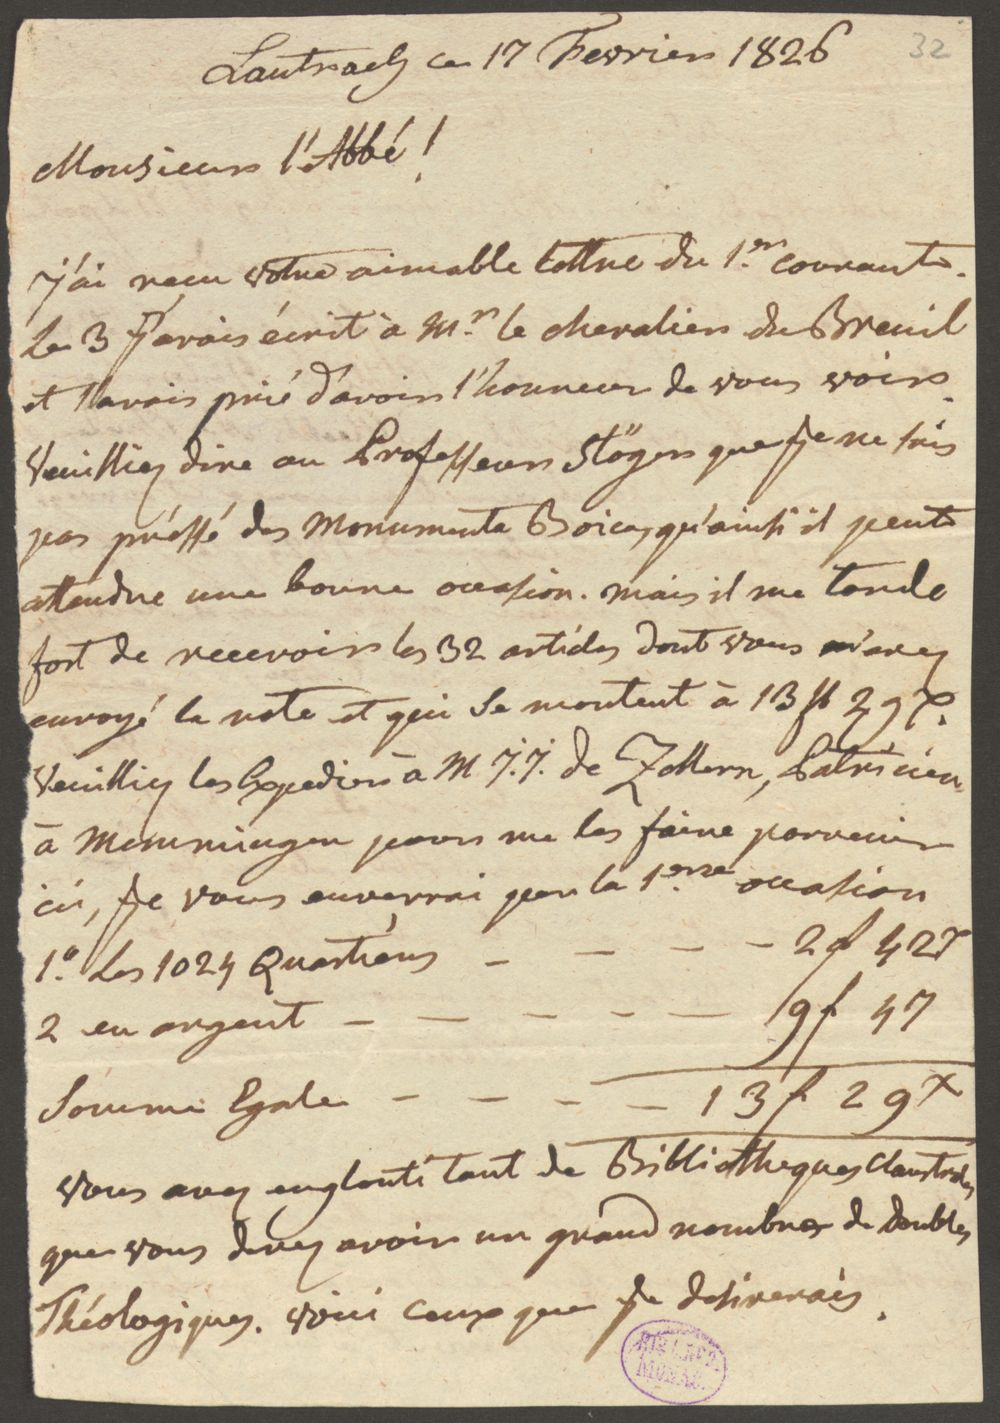 32
Lautrach ce 17 Fevrier 1826
Monsieur l'Abbé!
J'ai reçu votre aimable lettre du 1.er courant.
Le 3 J'avais écrit à M.r le chevalier du Breuil
et l'avais prié d'avoir l'honneur de vous voir.
Veuilliez dire au Professeur Stöger que Je ne suis
pas préssé des Monumenta Boica, qu'ainsi il peut
attendre une bonne occasion. mais il me tarde
fort de recevoir les 32 articles dont vous m'avez
envoyé la note et qui se montent à 13 fl 29 x.
Veuilliez les Expedier à M J.J. de Zollern, Patricien
à Memmingen pour me les faire parvenir
ici, Je vous enverrai par la 1.ere occasion
1.° Les 1024 Quartiers - - - - 2 f 42 x
2 en argent - - - - - 9 f 47
Somme Egale - - - - 13 f 29 x
vous avez englouti tant de Bibliotheques Claustrales
que vous devez avoir un grand nombre de Doubles
Théologiques. voici ceux que Je desirerais.